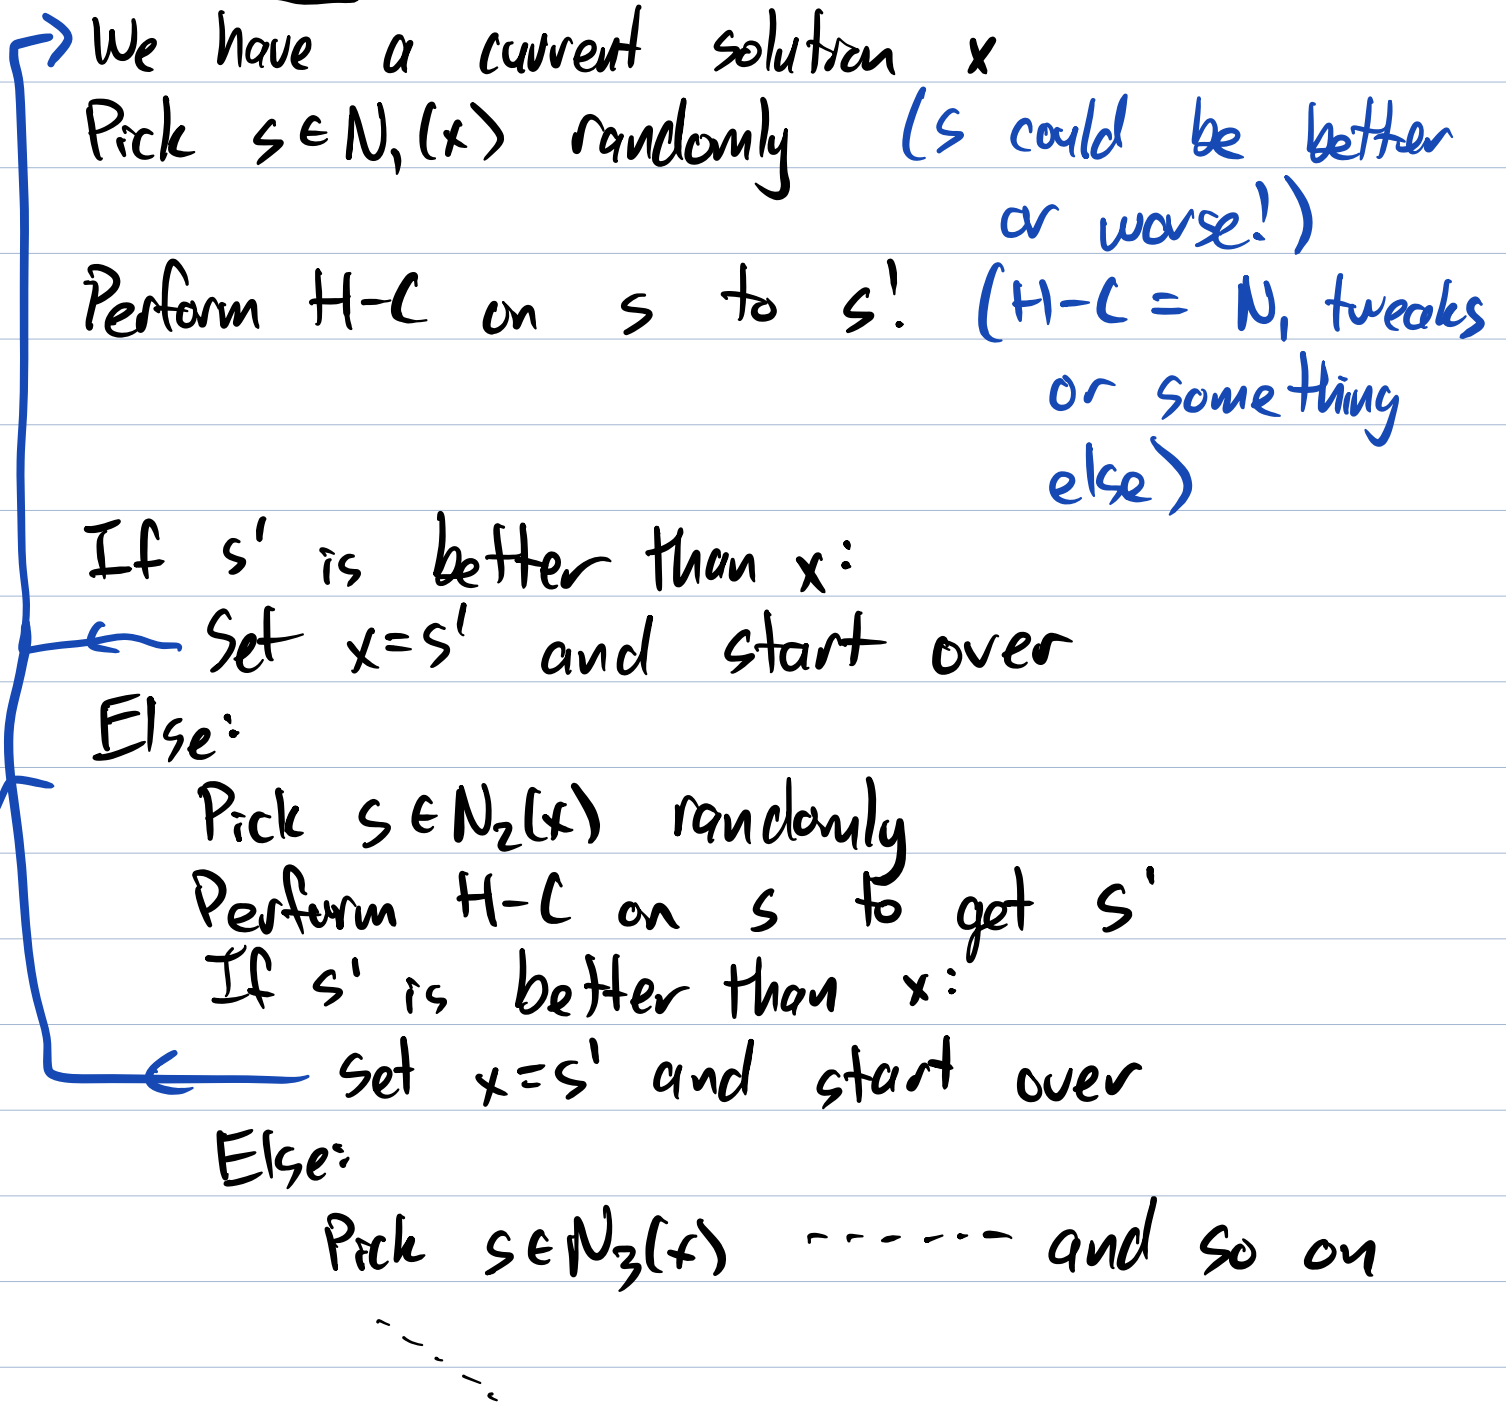 We have a current solution x
Pick s ∈ N₁(x) randomly (s could be better
or worse!)
Perform H-C on s to s'. (H-C = N₁ tweaks
or something
else)
If s' is better than x:
Set x=s' and start over
Else:
Pick s ∈ N₂(x) randomly
Perform H-C on s to get s'
If s' is better than x:
set x=s' and start over
Else:
Pick s ∈ N₃(x) ------ and so on